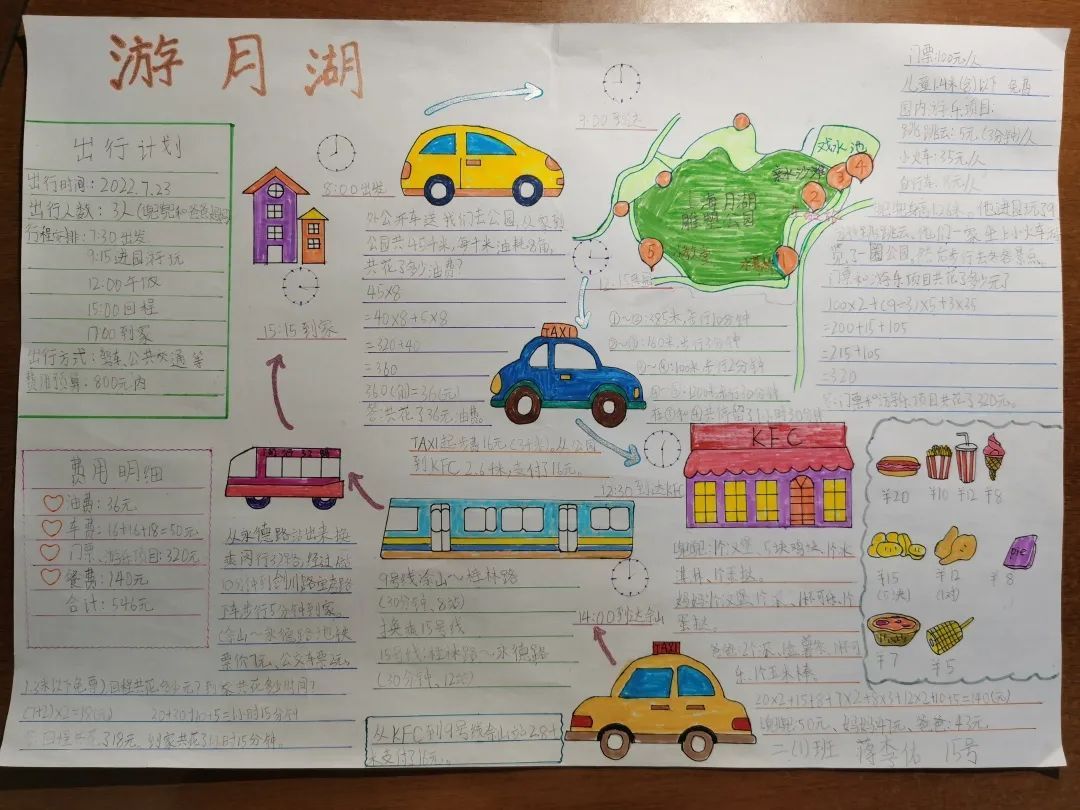 游月湖
出行计划
出行时间：2022.7.23
出行人数：3人(和爸爸妈妈)
行程安排：7:30出发
9:15进园游玩
12:00午饭
15:00回程
17:00到家
出行方式：驾车、公共交通 等
费用预算：800元内
8:00出发
9:00到达
门票:100元/人
儿童1.4米(含)以下 免费
园内游乐项目:
跳跳云:5元(3分钟)/人
小火车:35元/人
戏水池
亲水沙滩
上海月湖
雕塑公园
1
2
3
4
5
外公开车送我们去公园,从家到
公园共45千米,每千米油耗8角。
共花了多少油费?
45×8
=40×8+5×8
=320+40
=360
360(角)=36(元)
答:共花了36元油费。
①~②:385米,步行10分钟
160米,步行3分钟
100米 步行2分钟
他们一家坐上小火车
览了一圈公园,然后步行去各景点。
门票和游乐项目共花了多少元?
100×2+(9÷3)×5+3×35
=200+15+105
=215+105
=320
答:门票和游乐项目共花了320元。
15:15到家
TAXI
TAXI起步费16元(3千米),从公园
到KFC 2.6千米,支付了16元。
12:30到达KFC
KFC
费用明细
油费:36元
车费:16+16+18=50元
门票、游乐项目:320元
餐费:140元
合计:546元
从永德路站出来,换
乘闵行32路,经过
下车步行5分钟到家。
票价7元、公交车票2元,
1.3米以下免费)回程共花多少元?到家共花多少时间?
(7+2)×2=18(元) 20+30+10+5=1小时15分钟
答:回程共花了18元,到家共花了1小时15分钟。
9号线佘山~桂林路
(30分钟、8站)
换乘15号线
15号线:桂林路~永德路
(30分钟、12站)
14:00到达佘山
从KFC到9号线佘山站2.8千
米支付了16元。
TAXI
1个汉堡、5块鸡块、1个冰
淇淋、1个蛋挞。
妈妈:1个汉堡、
蛋挞。
乐、1个玉米棒。
20×2+15+8+7×2+8×3+12×2+10+5=140(元)
50元、妈妈47元、爸爸:43元。
¥20
¥10
¥12
¥8
¥15
(5块)
¥12
¥8
pie
¥7
¥5
二(1)班 蒋李佑 15号